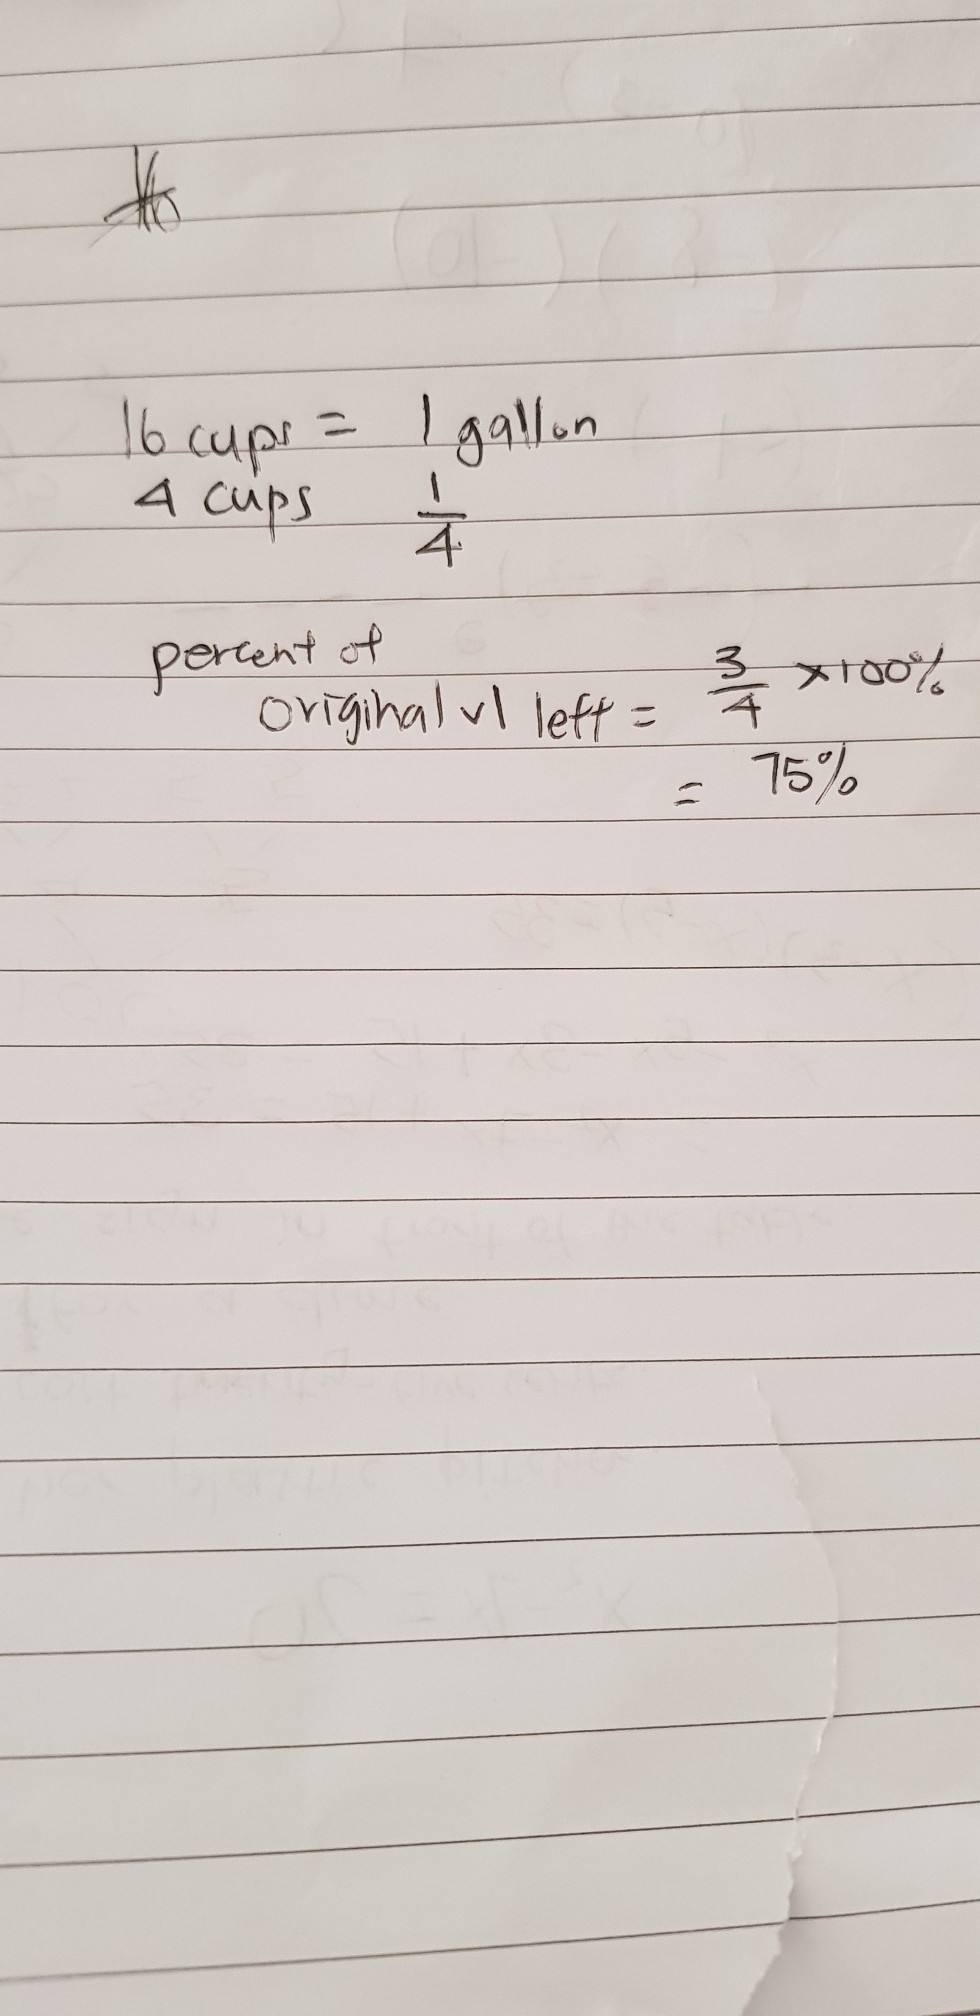 16 cups = 1 gallon
4 cups 1/4
percent of
original vl left = 3/4 ×100%
= 75%